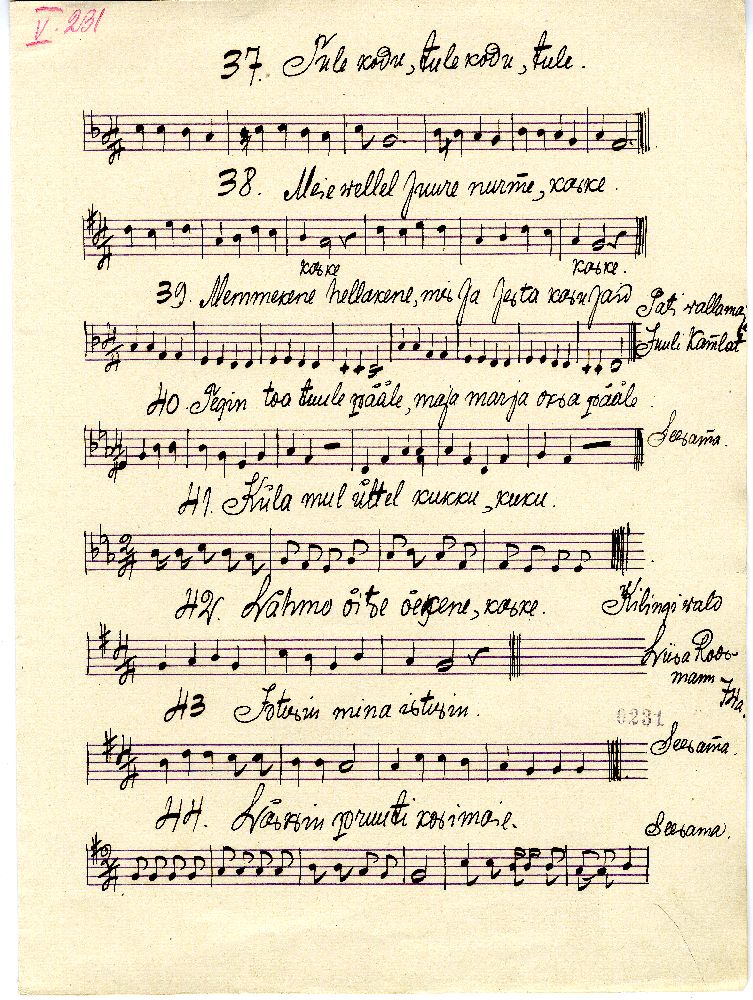 V. 231
37. Tule kodu, tule kodu, tule.
38. Meie wellel suure nurm̄e, kaske.
kaske kaske.
39. Memmekene hellakene, mis sa sesta kasu said
Pati wallamaja
Juuli Kam̄lat
40. Tegin toa tuule pääle, maja marja oksa pääle
Seesam̄a.
41. Küla mul üttel kukku, kuku.
42. Lähmo õitse õekene, kaske.
Kilingi wald
Liisa Roos-
mann
43 Istusin mina istusin.
0231
Seesam̄a.
44. Läksin pruuti kosimaie.
Seesama.